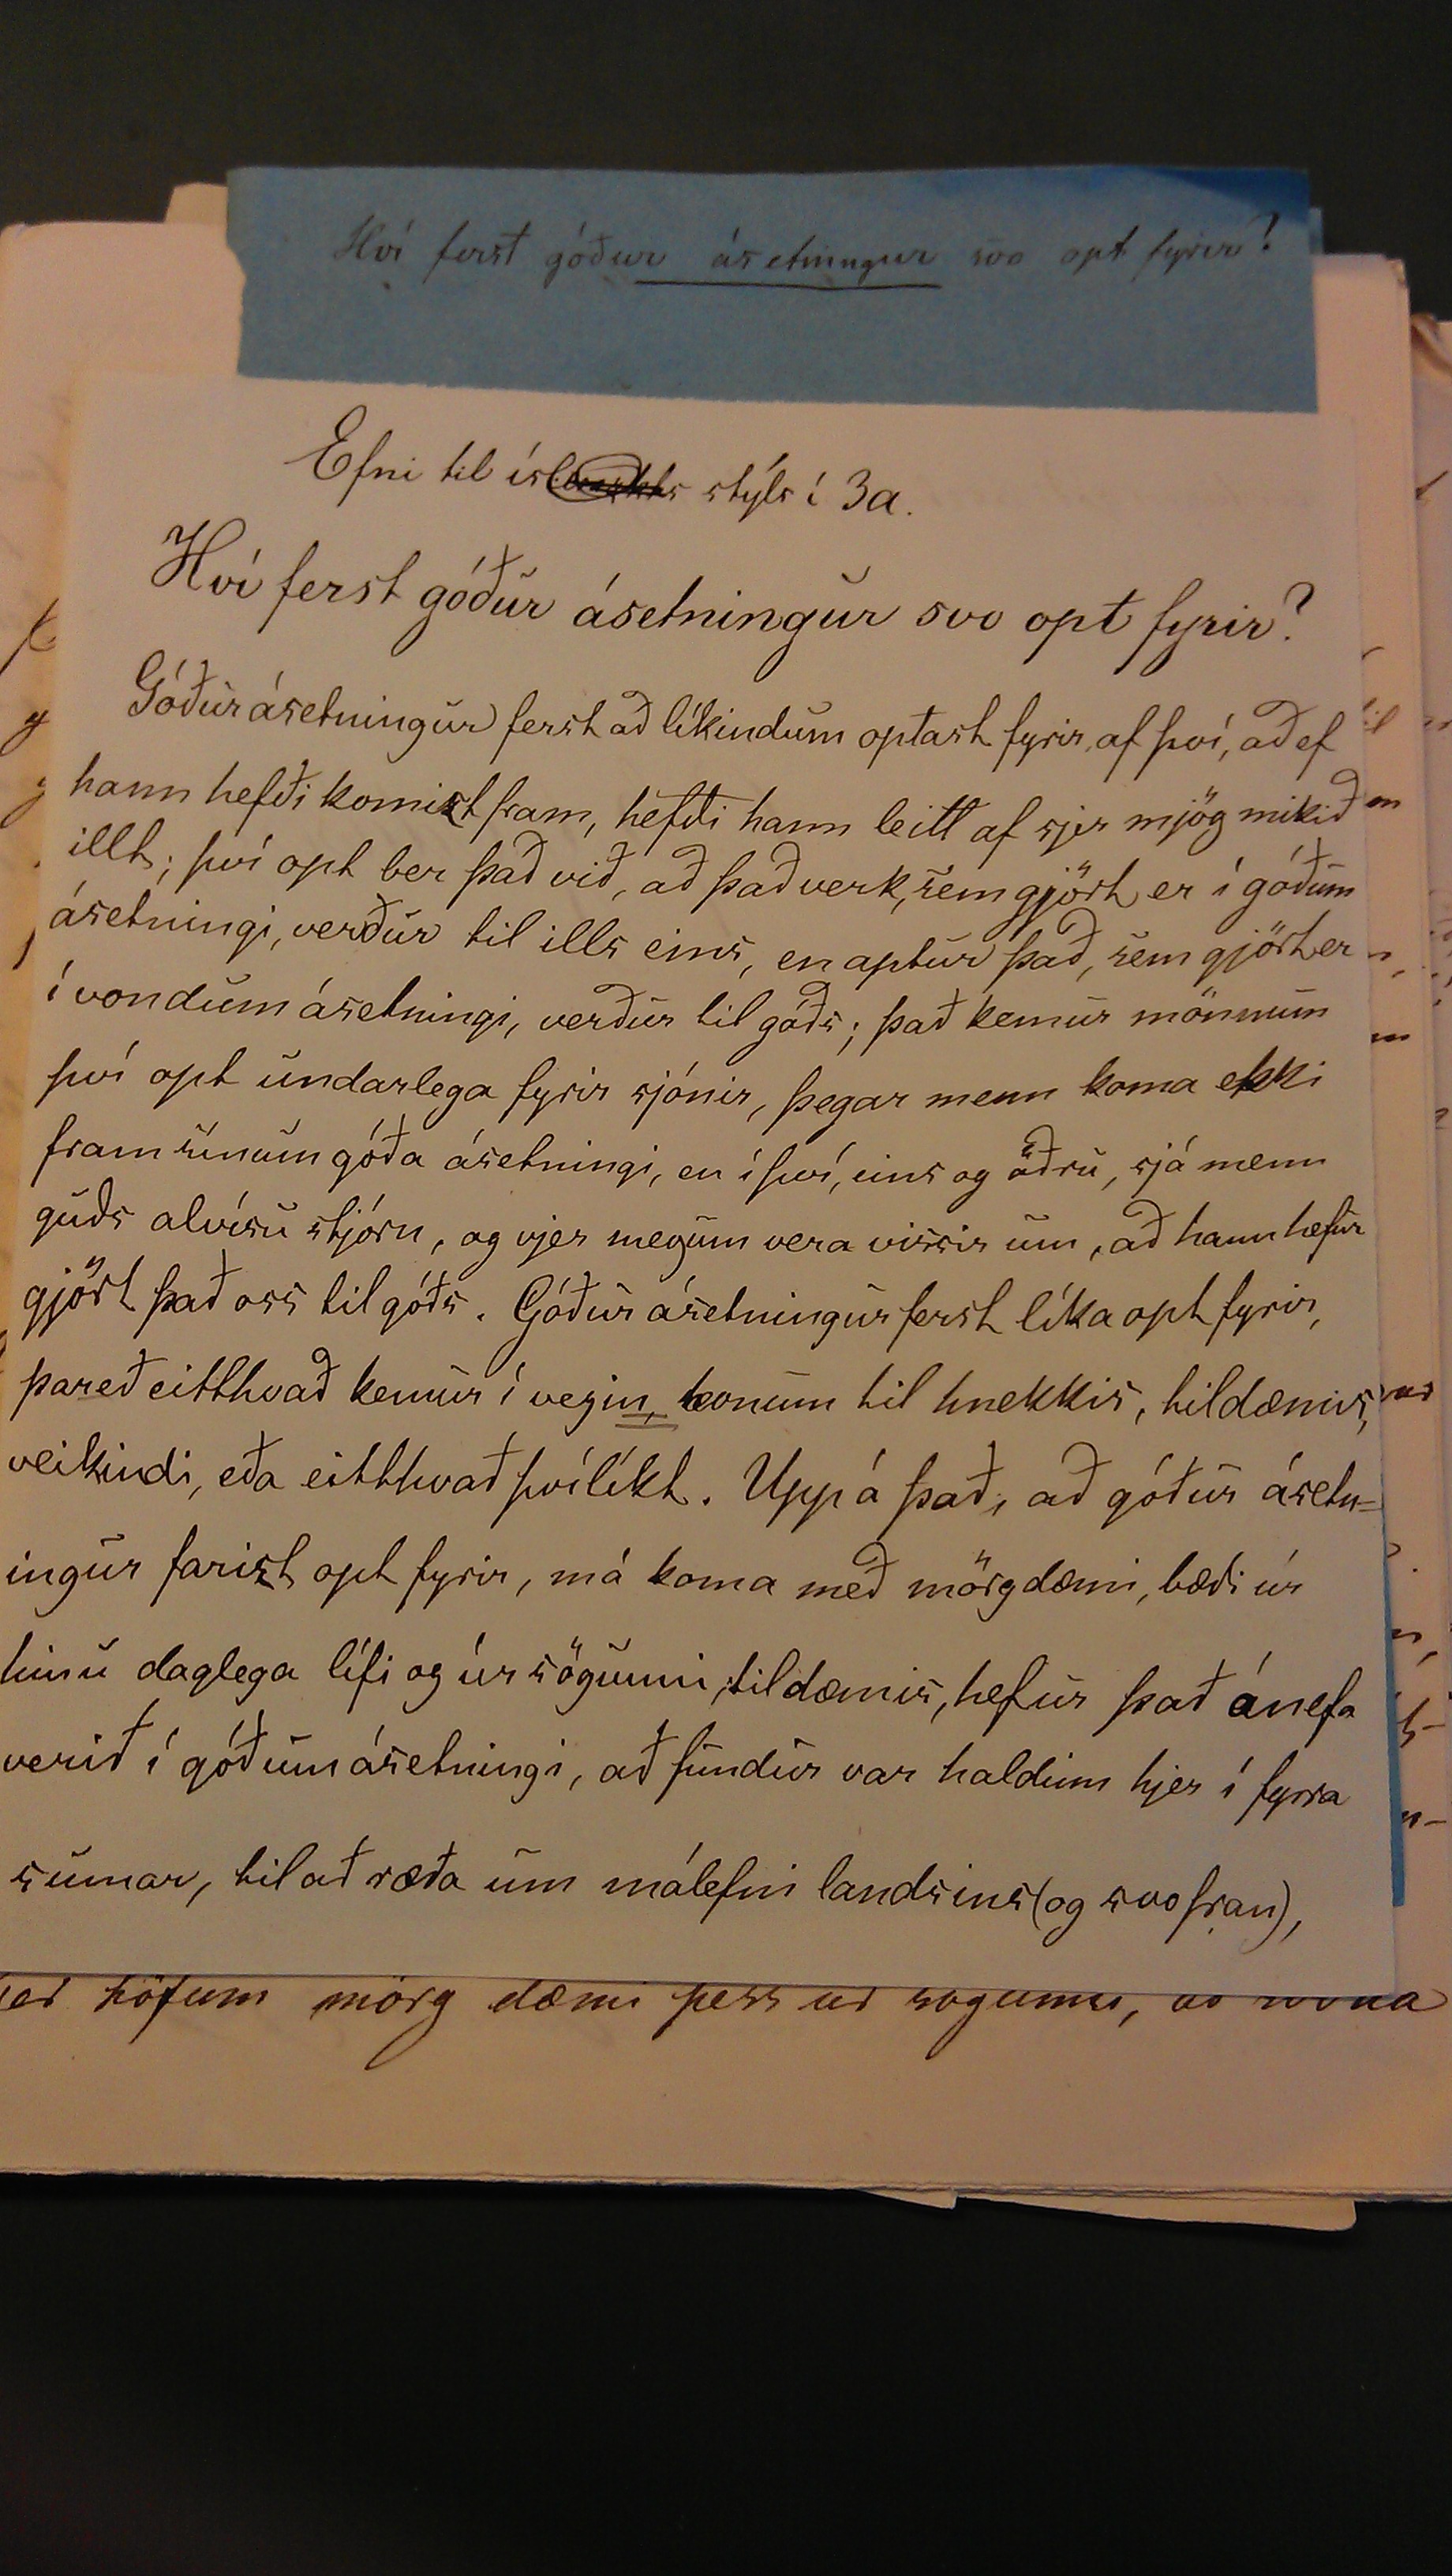 Hví ferst góður ásetningur svo opt fyrir?
Efni til ísl stýls í 3a.
Hví ferst góður ásetningur svo opt fyrir?
Góður ásetningur ferst að líkindum optast fyrir, af því, að ef
hann hefði komizt fram, hefði hann leitt af sjer mjög mikið
illt; því opt ber það við, að það verk, sem gjört er í góðum
ásetningi, verður til ills eins, en aptur það, sem gjört er
í vondum ásetningi, verður til góðs; það kemur mönnum
því opt undarlega fyrir sjónir, þegar menn koma ekki
fram sínum góða ásetningi, en í því, eins og öðru, sjá menn
guðs alvísu stjórn, og vjer megum vera vissir um, að hann hefur
gjört það oss til góðs. Góður ásetningur ferst líka opt fyrir,
þareð eitthvað kemur í vegin, honum til hnekkis, tildæmis,
veikindi, eða eitthvað þvílíkt. Uppá það, að góður ásetn=
ingur farizt opt fyrir, má koma með mörg dæmi, bæði úr
hinu daglega lífi og úr sögunni, tildæmis, hefur það ánefa
verið í góðum ásetningi, að fundur var haldinn hjer í fyrra
sumar, til að ræða um málefni landsins (og svo fran),
höfum mörg dæmi þess úr sögunni, að